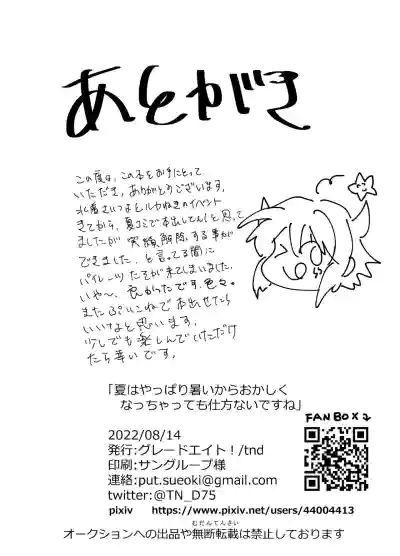 あとがき
この度は、この本をお手にとって
いただき、ありがとうございます。
水着さいつよとルカねきのイベント
きてから、夏コミで本出してん!と思って
ましたが 実績解除する事が
できました、と言ってる間に
パイレーツたそが来てしまいました。
いや〜、良かったです、色々。
またぷいこねで本出せたら
いいなと思います。
少しでも楽しんでいただけ
たら幸いです。
「夏はやっぱり暑いからおかしく
なっちゃっても仕方ないですね」
FANBOX
2022/08/14
発行:グレードエイト!/tnd
印刷:サングループ様
連絡:put.sueoki@gmail.com
twitter:@TN_D75
pixiv https://www.pixiv.net/users/44004413
むだんてんさい
オークションへの出品や無断転載は禁止しております